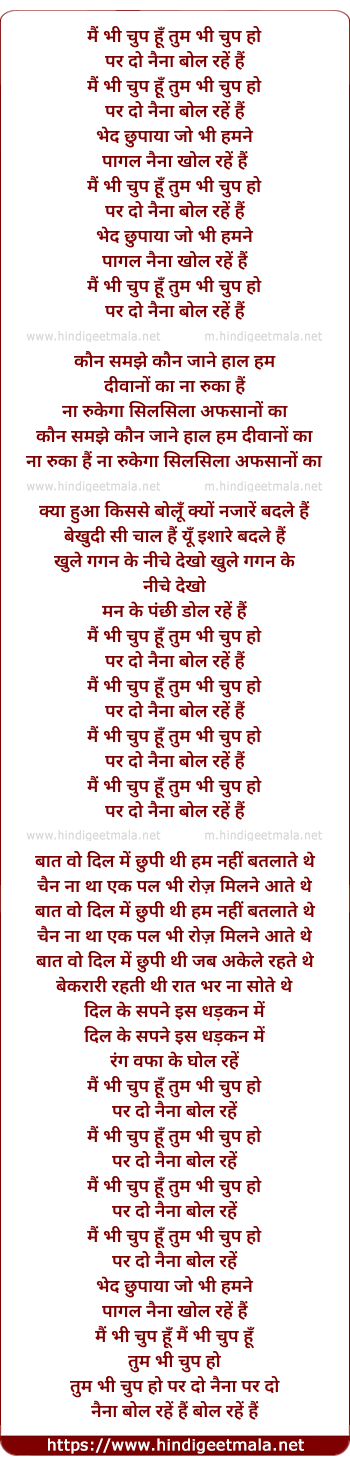 मैं भी चुप हूँ तुम भी चुप हो
पर दो नैना बोल रहें हैं
मैं भी चुप हूँ तुम भी चुप हो
पर दो नैना बोल रहें हैं
भेद छुपाया जो भी हमने
पागल नैना खोल रहें हैं
मैं भी चुप हूँ तुम भी चुप हो
पर दो नैना बोल रहें हैं
भेद छुपाया जो भी हमने
पागल नैना खोल रहें हैं
मैं भी चुप हूँ तुम भी चुप हो
पर दो नैना बोल रहें हैं
www.hindigeetmala.net m.hindigeetmala.net
कौन समझे कौन जाने हाल हम
दीवानों का ना रुका हैं
ना रुकेगा सिलसिला अफसानों का
कौन समझे कौन जाने हाल हम दीवानों का
ना रुका हैं ना रुकेगा सिलसिला अफसानों का
www.hindigeetmala.net m.hindigeetmala.net
क्या हुआ किससे बोलूँ क्यों नजारें बदले हैं
बेखुदी सी चाल हैं यूँ इशारे बदले हैं
खुले गगन के नीचे देखो खुले गगन के
नीचे देखो
मन के पंछी डोल रहें हैं
मैं भी चुप हूँ तुम भी चुप हो
पर दो नैना बोल रहें हैं
मैं भी चुप हूँ तुम भी चुप हो
पर दो नैना बोल रहें हैं
मैं भी चुप हूँ तुम भी चुप हो
पर दो नैना बोल रहें हैं
मैं भी चुप हूँ तुम भी चुप हो
पर दो नैना बोल रहें हैं
www.hindigeetmala.net m.hindigeetmala.net
बात वो दिल में छुपी थी हम नहीं बतलाते थे
चैन ना था एक पल भी रोज़ मिलने आते थे
बात वो दिल में छुपी थी हम नहीं बतलाते थे
चैन ना था एक पल भी रोज़ मिलने आते थे
बात वो दिल में छुपी थी जब अकेले रहते थे
बेकरारी रहती थी रात भर ना सोते थे
दिल के सपने इस धड़कन में
दिल के सपने इस धड़कन में
रंग वफा के घोल रहें
मैं भी चुप हूँ तुम भी चुप हो
पर दो नैना बोल रहें
मैं भी चुप हूँ तुम भी चुप हो
पर दो नैना बोल रहें
मैं भी चुप हूँ तुम भी चुप हो
पर दो नैना बोल रहें
मैं भी चुप हूँ तुम भी चुप हो
पर दो नैना बोल रहें
भेद छुपाया जो भी हमने
पागल नैना खोल रहें हैं
मैं भी चुप हूँ मैं भी चुप हूँ
तुम भी चुप हो
तुम भी चुप हो पर दो नैना पर दो
नैना बोल रहें हैं बोल रहें हैं
https://www.hindigeetmala.net